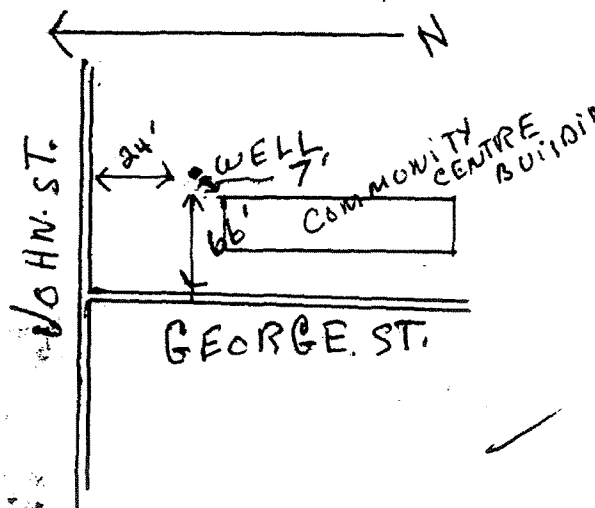 N
JOHN. ST.
24'
WELL
7'
66'
COMMUNITY
CENTRE
BUILDIN
GEORGE. ST.